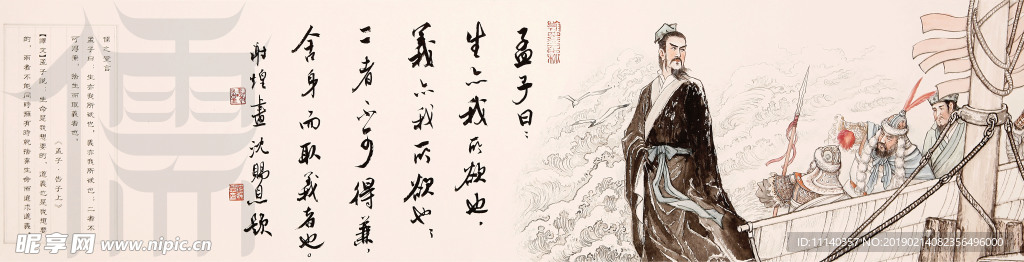 孟子曰：
生亦我所欲也，
義亦我所欲也；
二者不可得兼，
舍身而取義者也。
煌畫 沈賜恩題
儒
儒之聖言
孟子曰：生亦我所欲也，義亦我所欲也，二者不
可得兼，舍生而取義者也。
《孟子·告子上》
【譯文】孟子說，生命是我想要的，道義也是我想要
的，兩者不能同時擁有時就捨棄生命而選擇道義
昵享网 www.nipic.cn
ID:11140357 NO:20190214082356496000